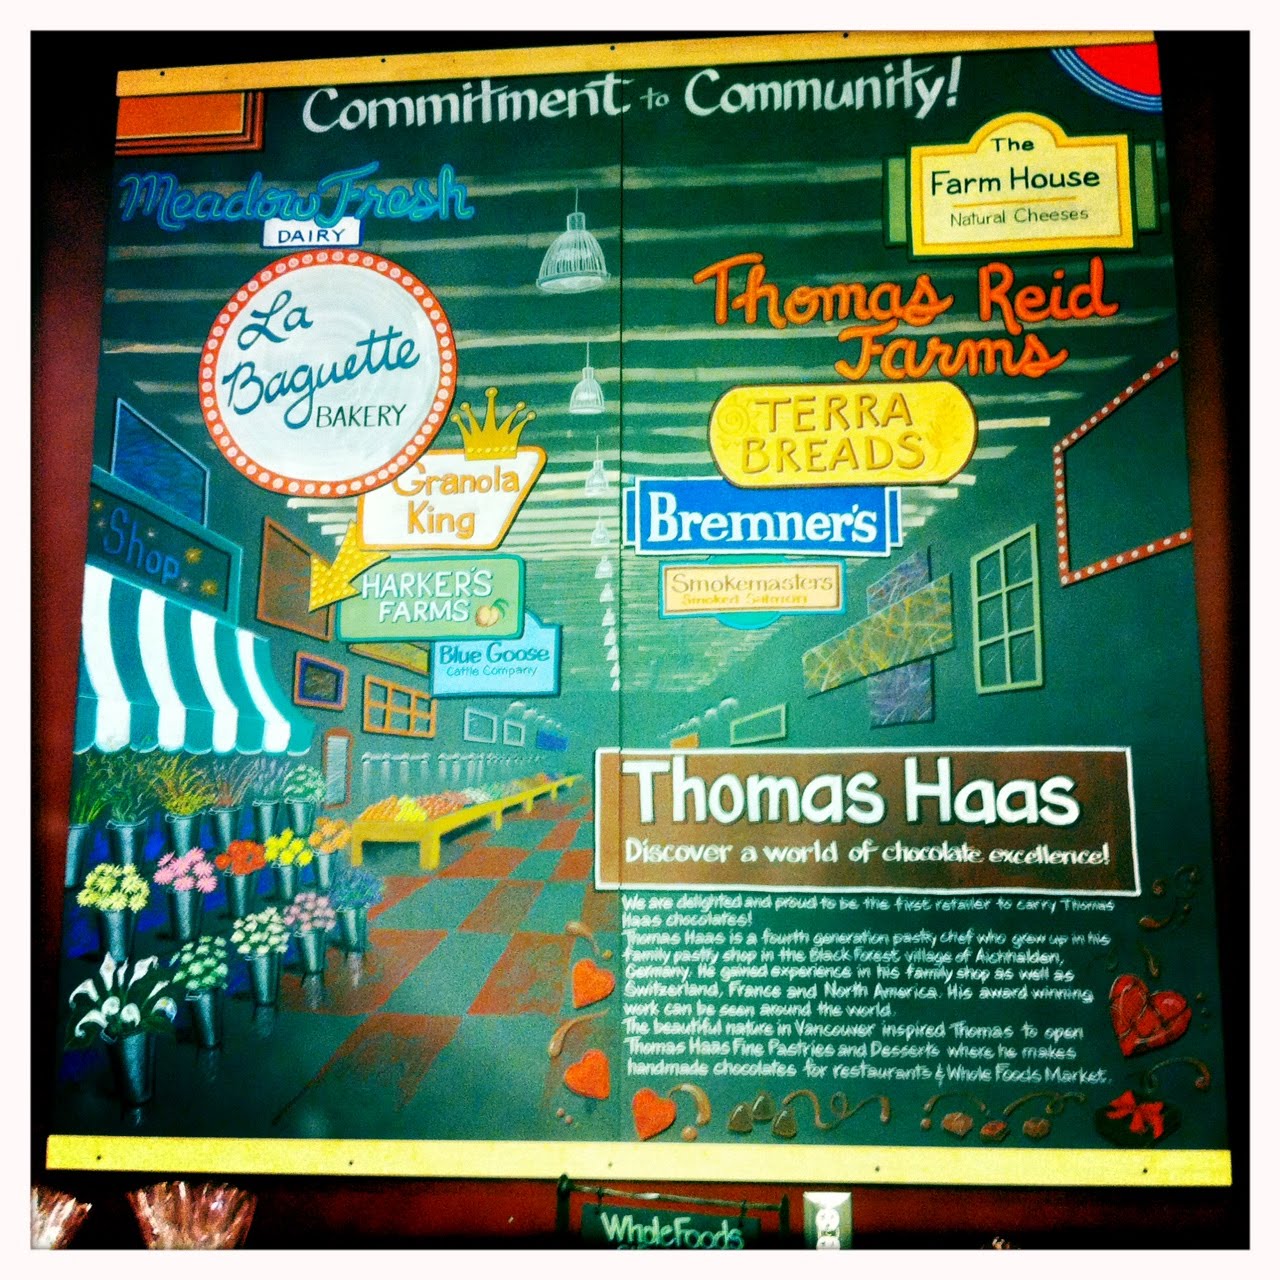 Commitment to Community!
Meadow Fresh
DAIRY
La
Baguette
BAKERY
Granola
King
HARKER'S
FARMS
Blue Goose
Cattle Company
Shop
The
Farm House
Natural Cheeses
Thomas Reid
Farms
TERRA
BREADS
Bremner's
Smokemasters
Smoked Salmon
Thomas Haas
Discover a world of chocolate excellence!
We are delighted and proud to be the first retailer to carry Thomas
Haas chocolates!
Thomas Haas is a fourth generation pastry chef who grew up in his
family pastry shop in the Black Forest village of Aichhalden,
Germany. He gained experience in his family shop as well as
Switzerland, France and North America. His award winning
work can be seen around the world.
The beautiful nature in Vancouver inspired Thomas to open
Thomas Haas Fine Pastries and Desserts where he makes
handmade chocolates for restaurants & Whole Foods Market.
Whole Foods